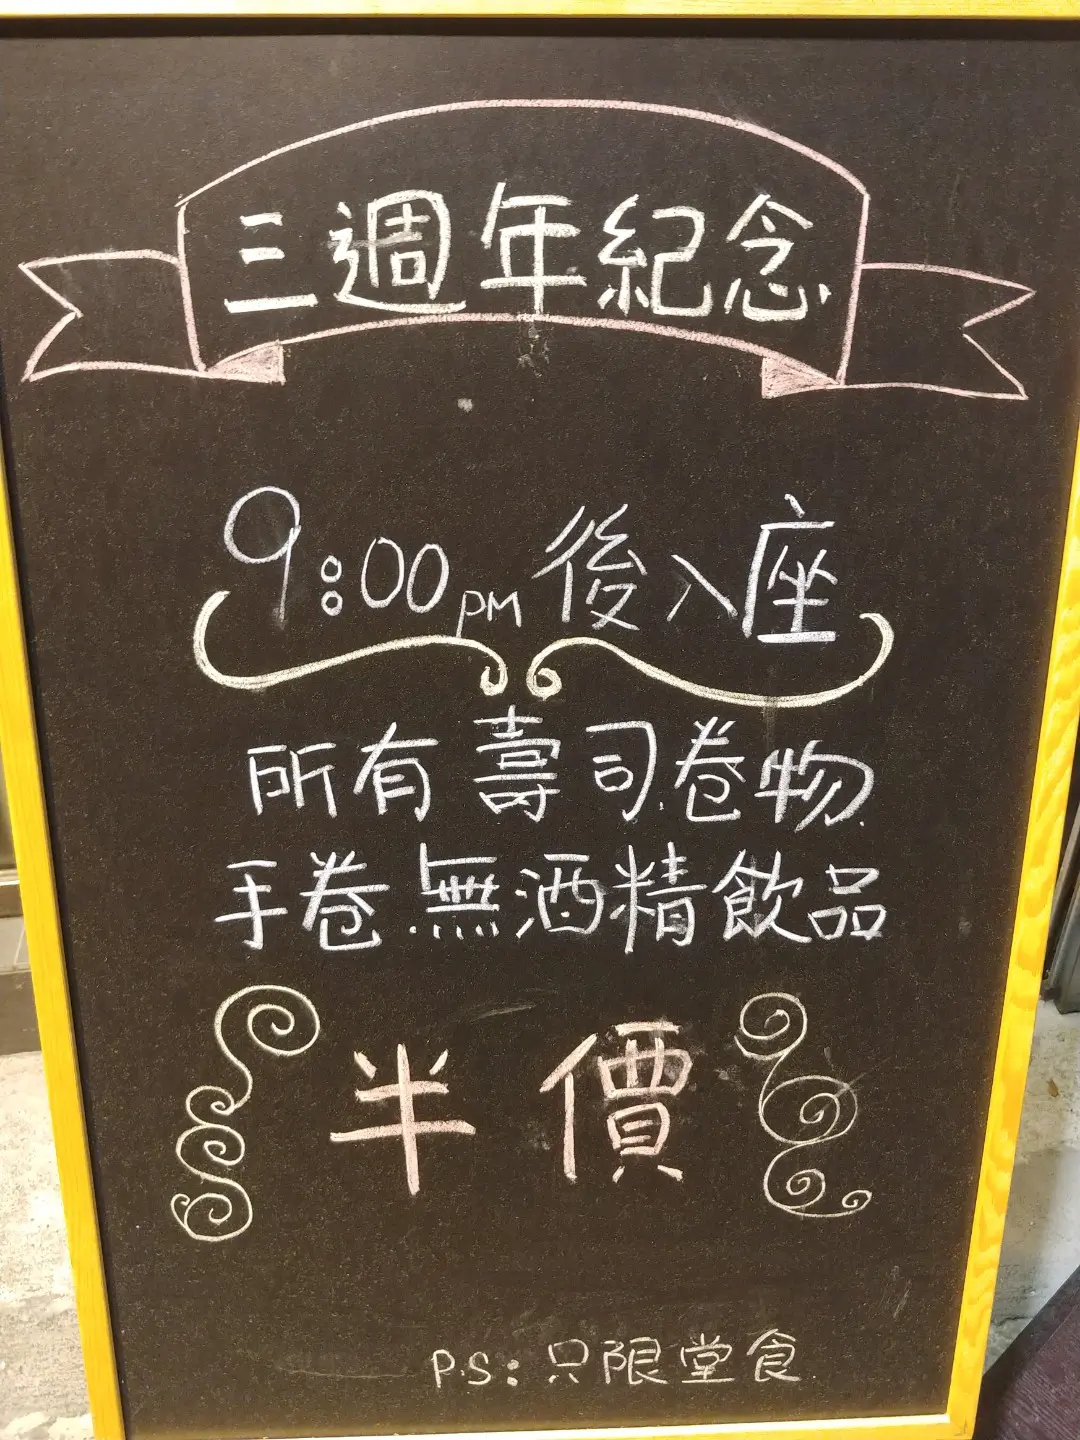 三週年紀念
9:00PM後入座
所有壽司.卷物.
手卷.無酒精飲品
半價
P.S:只限堂食